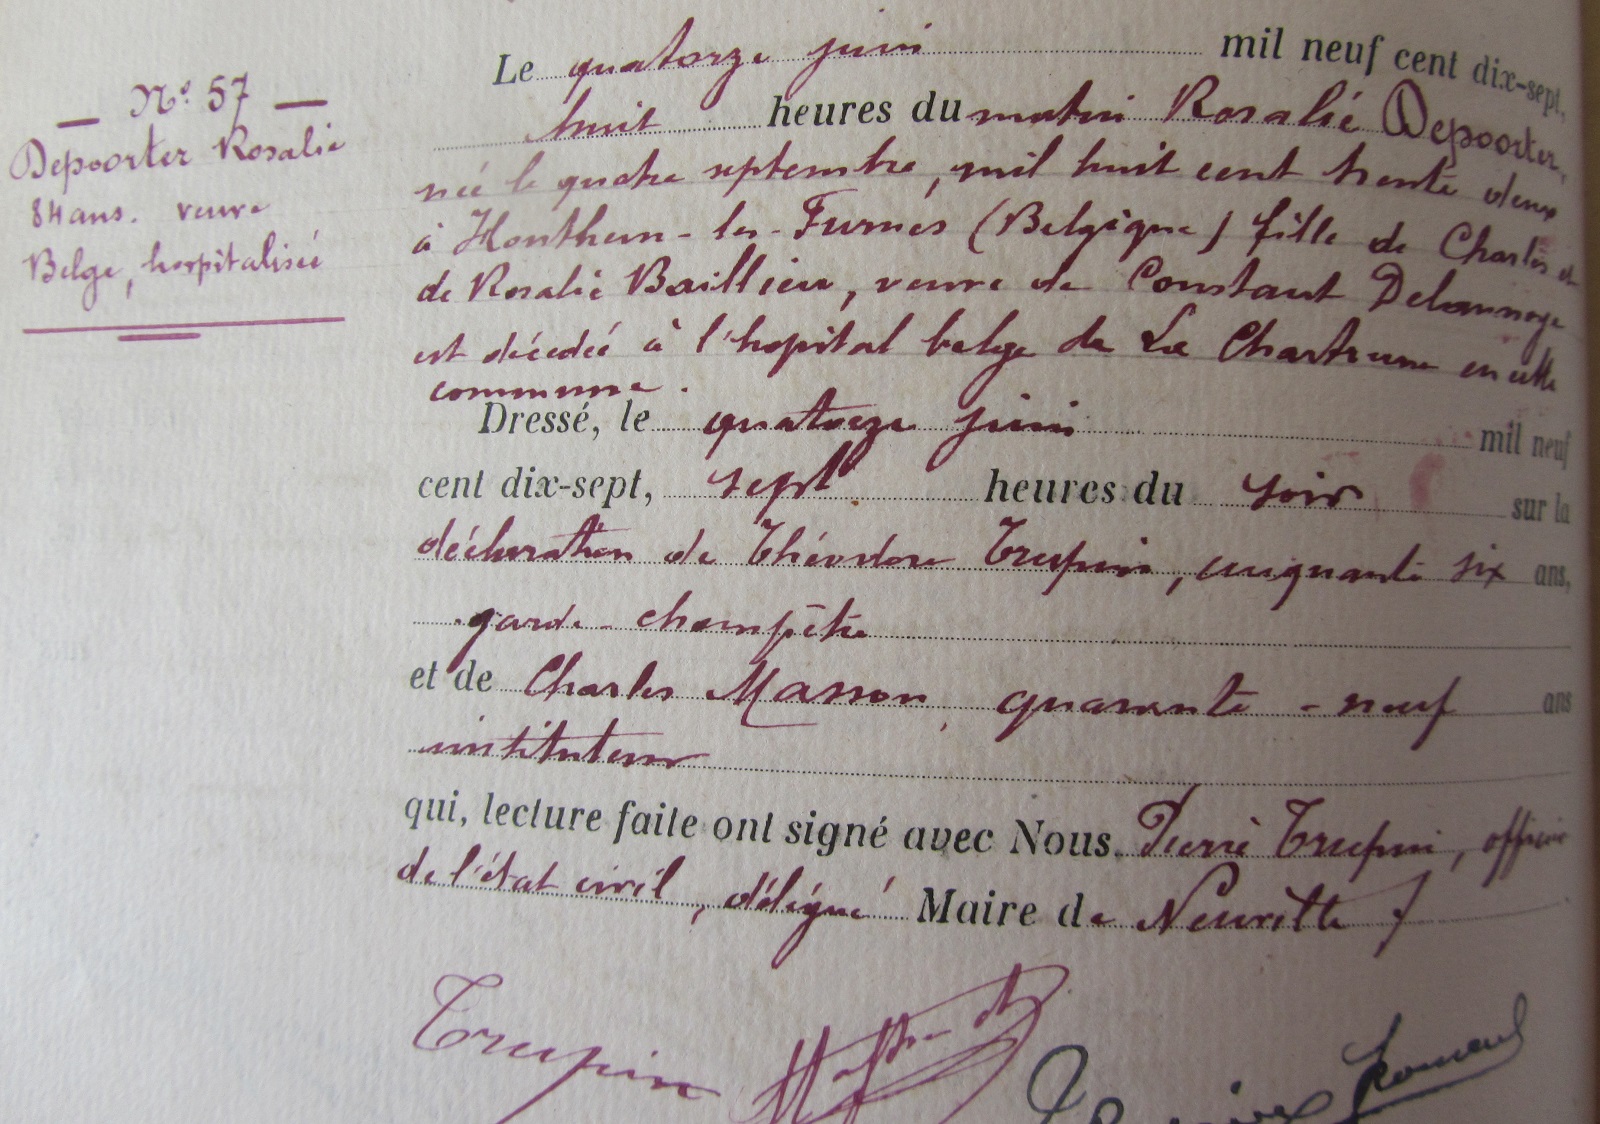 N° 57
Depoorter Rosalie
84 ans. veuve
Belge, hospitalisée
Le quatorze juin mil neuf cent dix-sept,
huit heures du matin Rosalie Depoorter,
née le quatre septembre, mil huit cent trente deux
à Honthem-les-Furnes (Belgique) fille de Charles et
de Rosalie Baillieu, veuve de Constant Delannoye
est décédée à l'hopital belge de La Chartreuse en cette
commune.
Dressé, le quatorze juin mil neuf
cent dix-sept, sept heures du soir sur la
déclaration de Théodore Trupin, cinquante six ans,
garde-champêtre
et de Charles Masson, quarante-neuf ans
instituteur
qui, lecture faite ont signé avec Nous. Pierre Trupin, officier
de l'état civil, délégué Maire de Neuville
Trupin